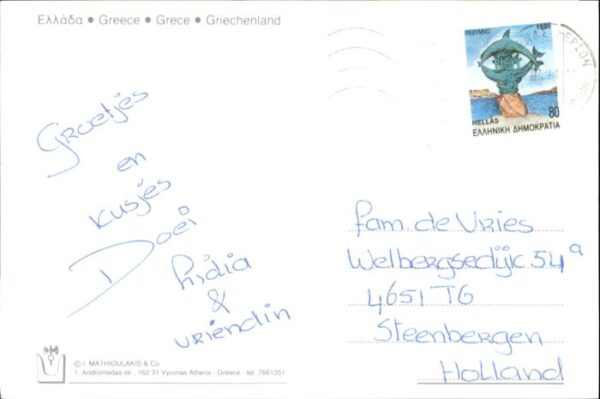 Ελλάδα • Greece • Grece • Griechenland
Groetjes
en
kusjes
Doei
Lidia
&
vriendin
ΡΕΘΥΜΝΟ
80
HELLAS
ΕΛΛΗΝΙΚΗ ΔΗΜΟΚΡΑΤΙΑ
fam. de Vries
Welbergsedijk 54a
4651 TG
Steenbergen
Holland
© I. MATHIOULAKIS & Co
1, Andromedas str. . 162 31 Vyronas Athens - Greece - tel. 7661351